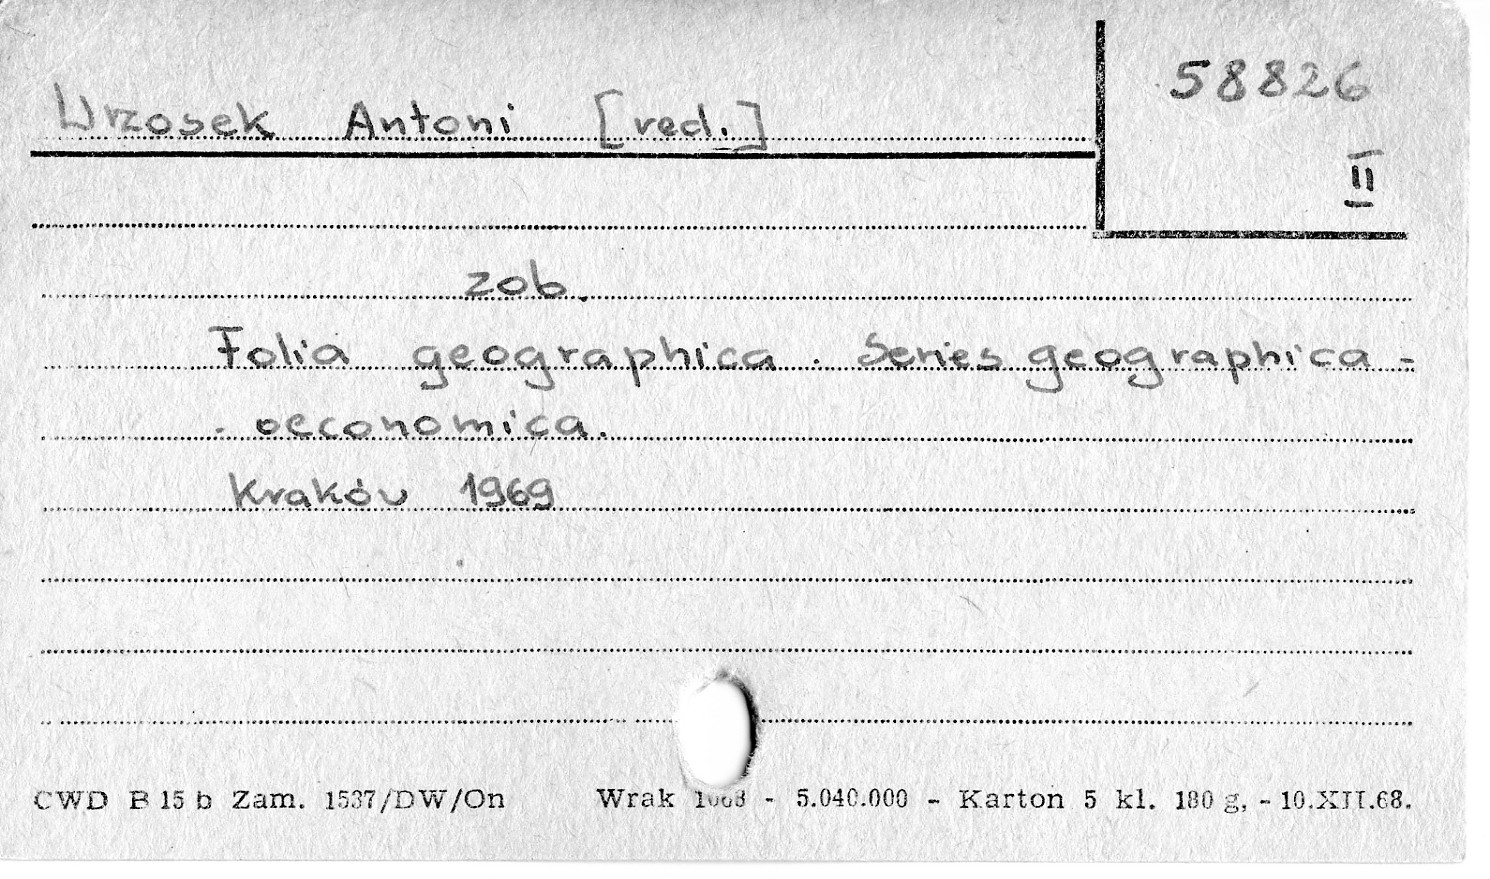 Wrzosek Antoni [red.]
58826
II
zob.
Folia geographica. Series geographica-
- oeconomica.
Kraków 1969
CWD B 15 b Zam. 1537/DW/On Wrak - 5.040.000 - Karton 5 kl. 180 g, - 10.XII.68.